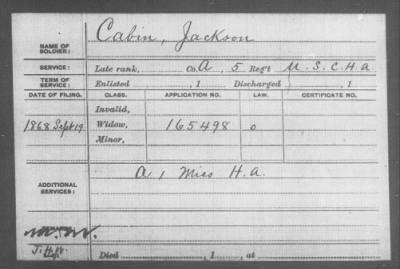 NAME OF SOLDIER: Cabin, Jackson
SERVICE: Late rank, Co. A, 5 Regt U.S.C.H.A
TERM OF SERVICE: Enlisted , 1 Discharged , 1
DATE OF FILING. CLASS. APPLICATION NO. LAW. CERTIFICATE NO.
Invalid,
1868 Sept 19 Widow, 165498 0
Minor,
ADDITIONAL SERVICES: A 1 Miss H.A.
Died , 1 , at